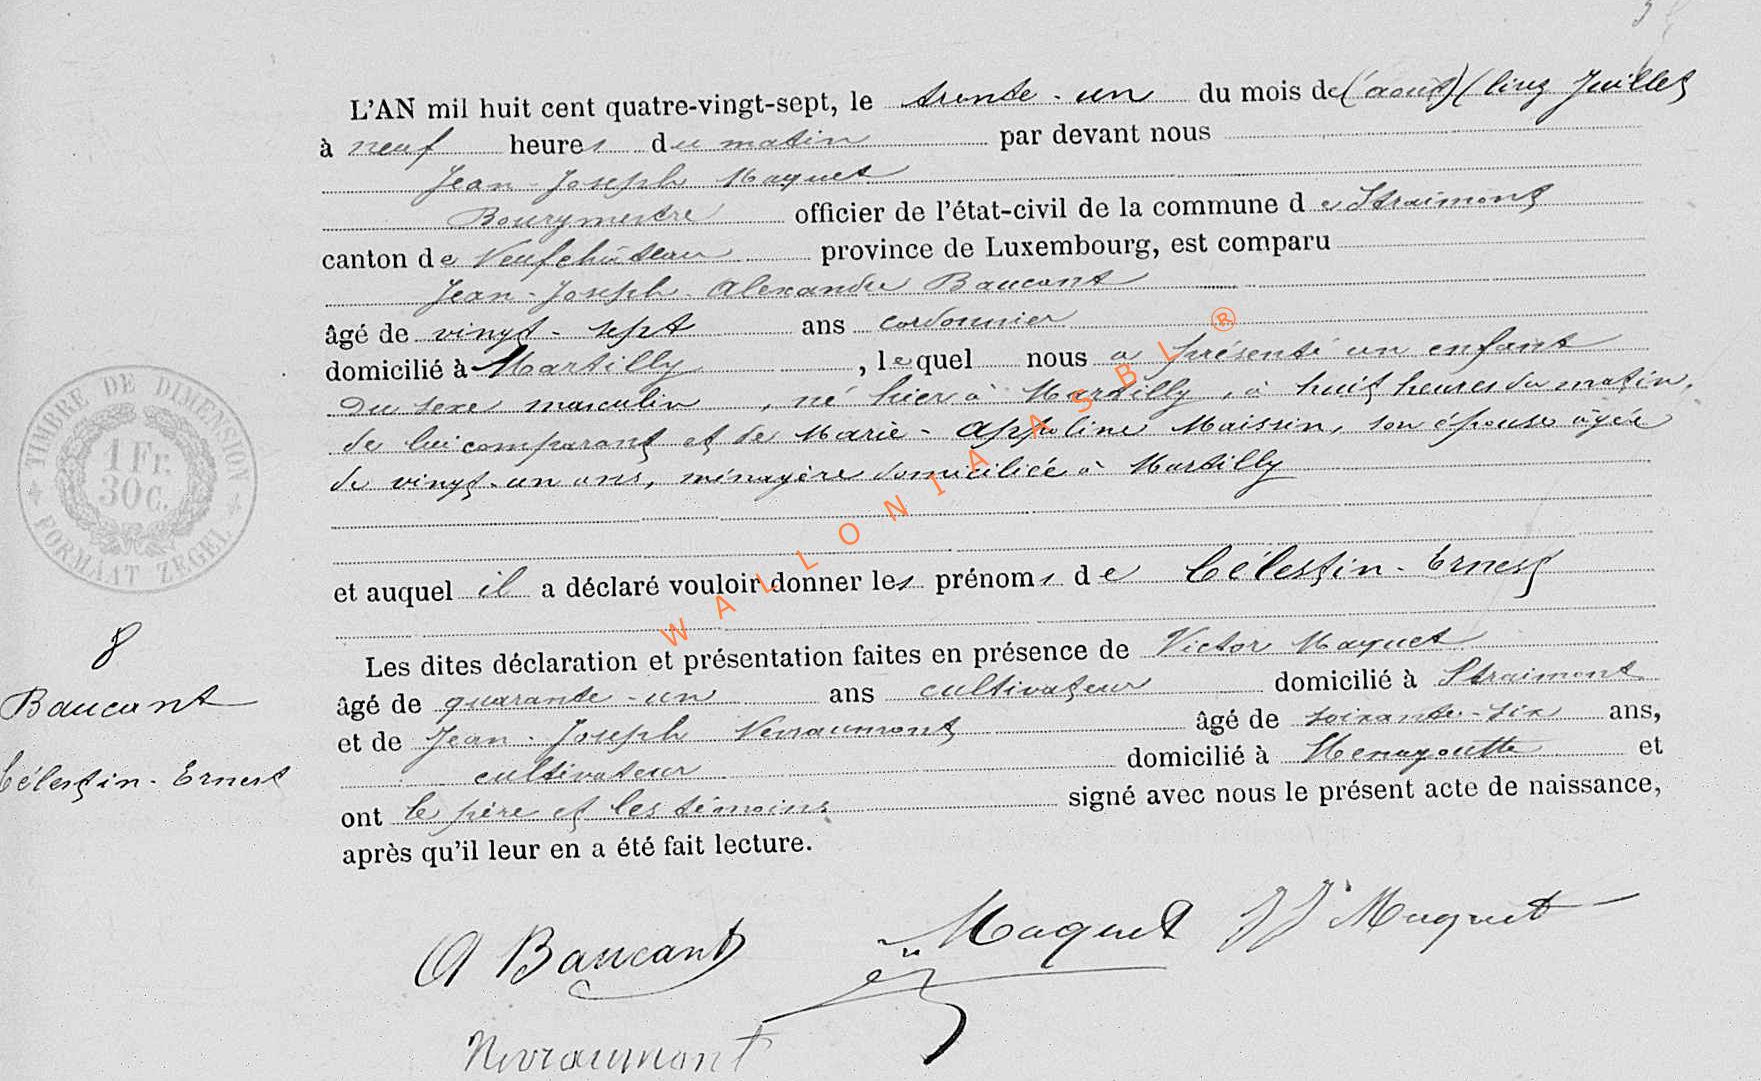 L'AN mil huit cent quatre-vingt-sept, le trente-un du mois de (août) (lirez Juillet
à neuf heures du matin par devant nous
Jean-Joseph Maquet
Bourgmestre officier de l'état-civil de la commune de Straimont
canton de Neufchâteau province de Luxembourg, est comparu
Jean-Joseph-Alexandre Baucant
âgé de vingt-sept ans cordonnier
domicilié à Martilly, lequel nous a présenté un enfant
du sexe masculin, né hier à Martilly, à huit heures du matin,
de lui comparant et de Marie-Appoline Maissin, son épouse âgée
de vingt-un ans, ménagère domiciliée à Martilly
et auquel il a déclaré vouloir donner les prénoms de Célestin-Ernest
8
Baucant
Célestin-Ernest
Les dites déclaration et présentation faites en présence de Victor Maquet
âgé de quarante-un ans cultivateur domicilié à Straimont
et de Jean-Joseph Nevraumont âgé de soixante-six ans,
cultivateur domicilié à Menugoutte et
ont le père et les témoins signé avec nous le présent acte de naissance,
après qu'il leur en a été fait lecture.
A Baucant Maquet JJ Maquet
Nevraumont
TIMBRE DE DIMENSION
1 Fr.
30 C.
FORMAAT ZEGEL
WALLONIA ASBL ®